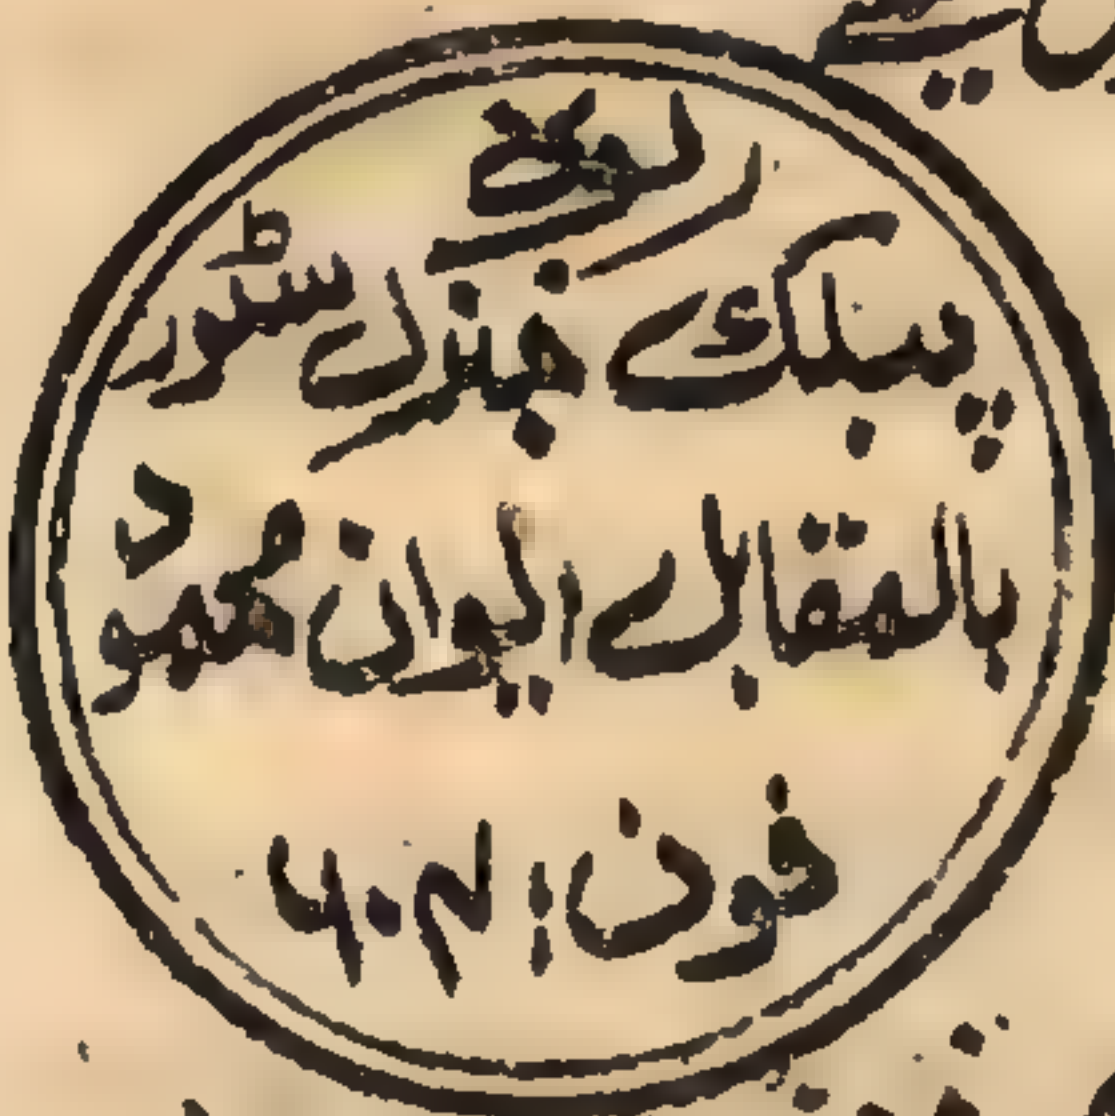 ربوہ
پبلک جنرل سٹور
بالمقابل ایوان محمود
فون: ۶۰۴